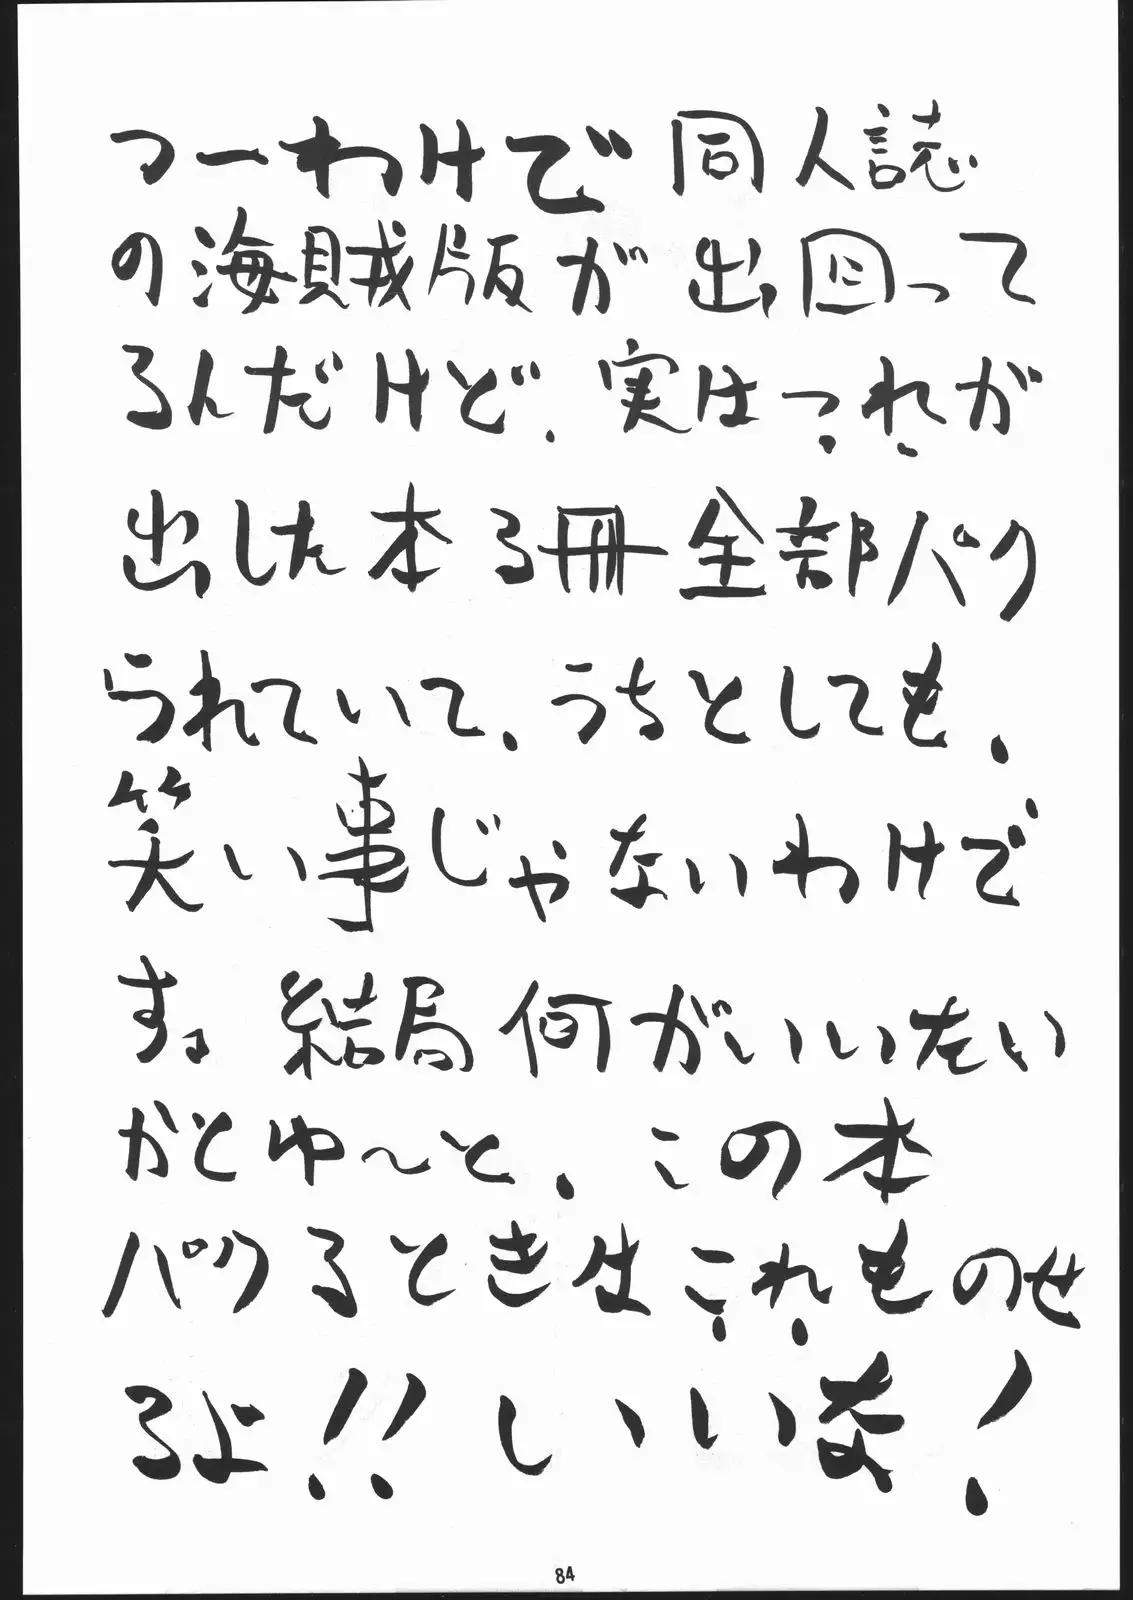 つーわけで同人誌
の海賊版が出回って
るんだけど、実はこれが
出した本る冊全部パク
られていて、うちとしても、
笑い事じゃないわけで
す。結局何がいいたい
かとゆ〜と、この本
パクるときはこれものせ
るよ!!しいいな!
84